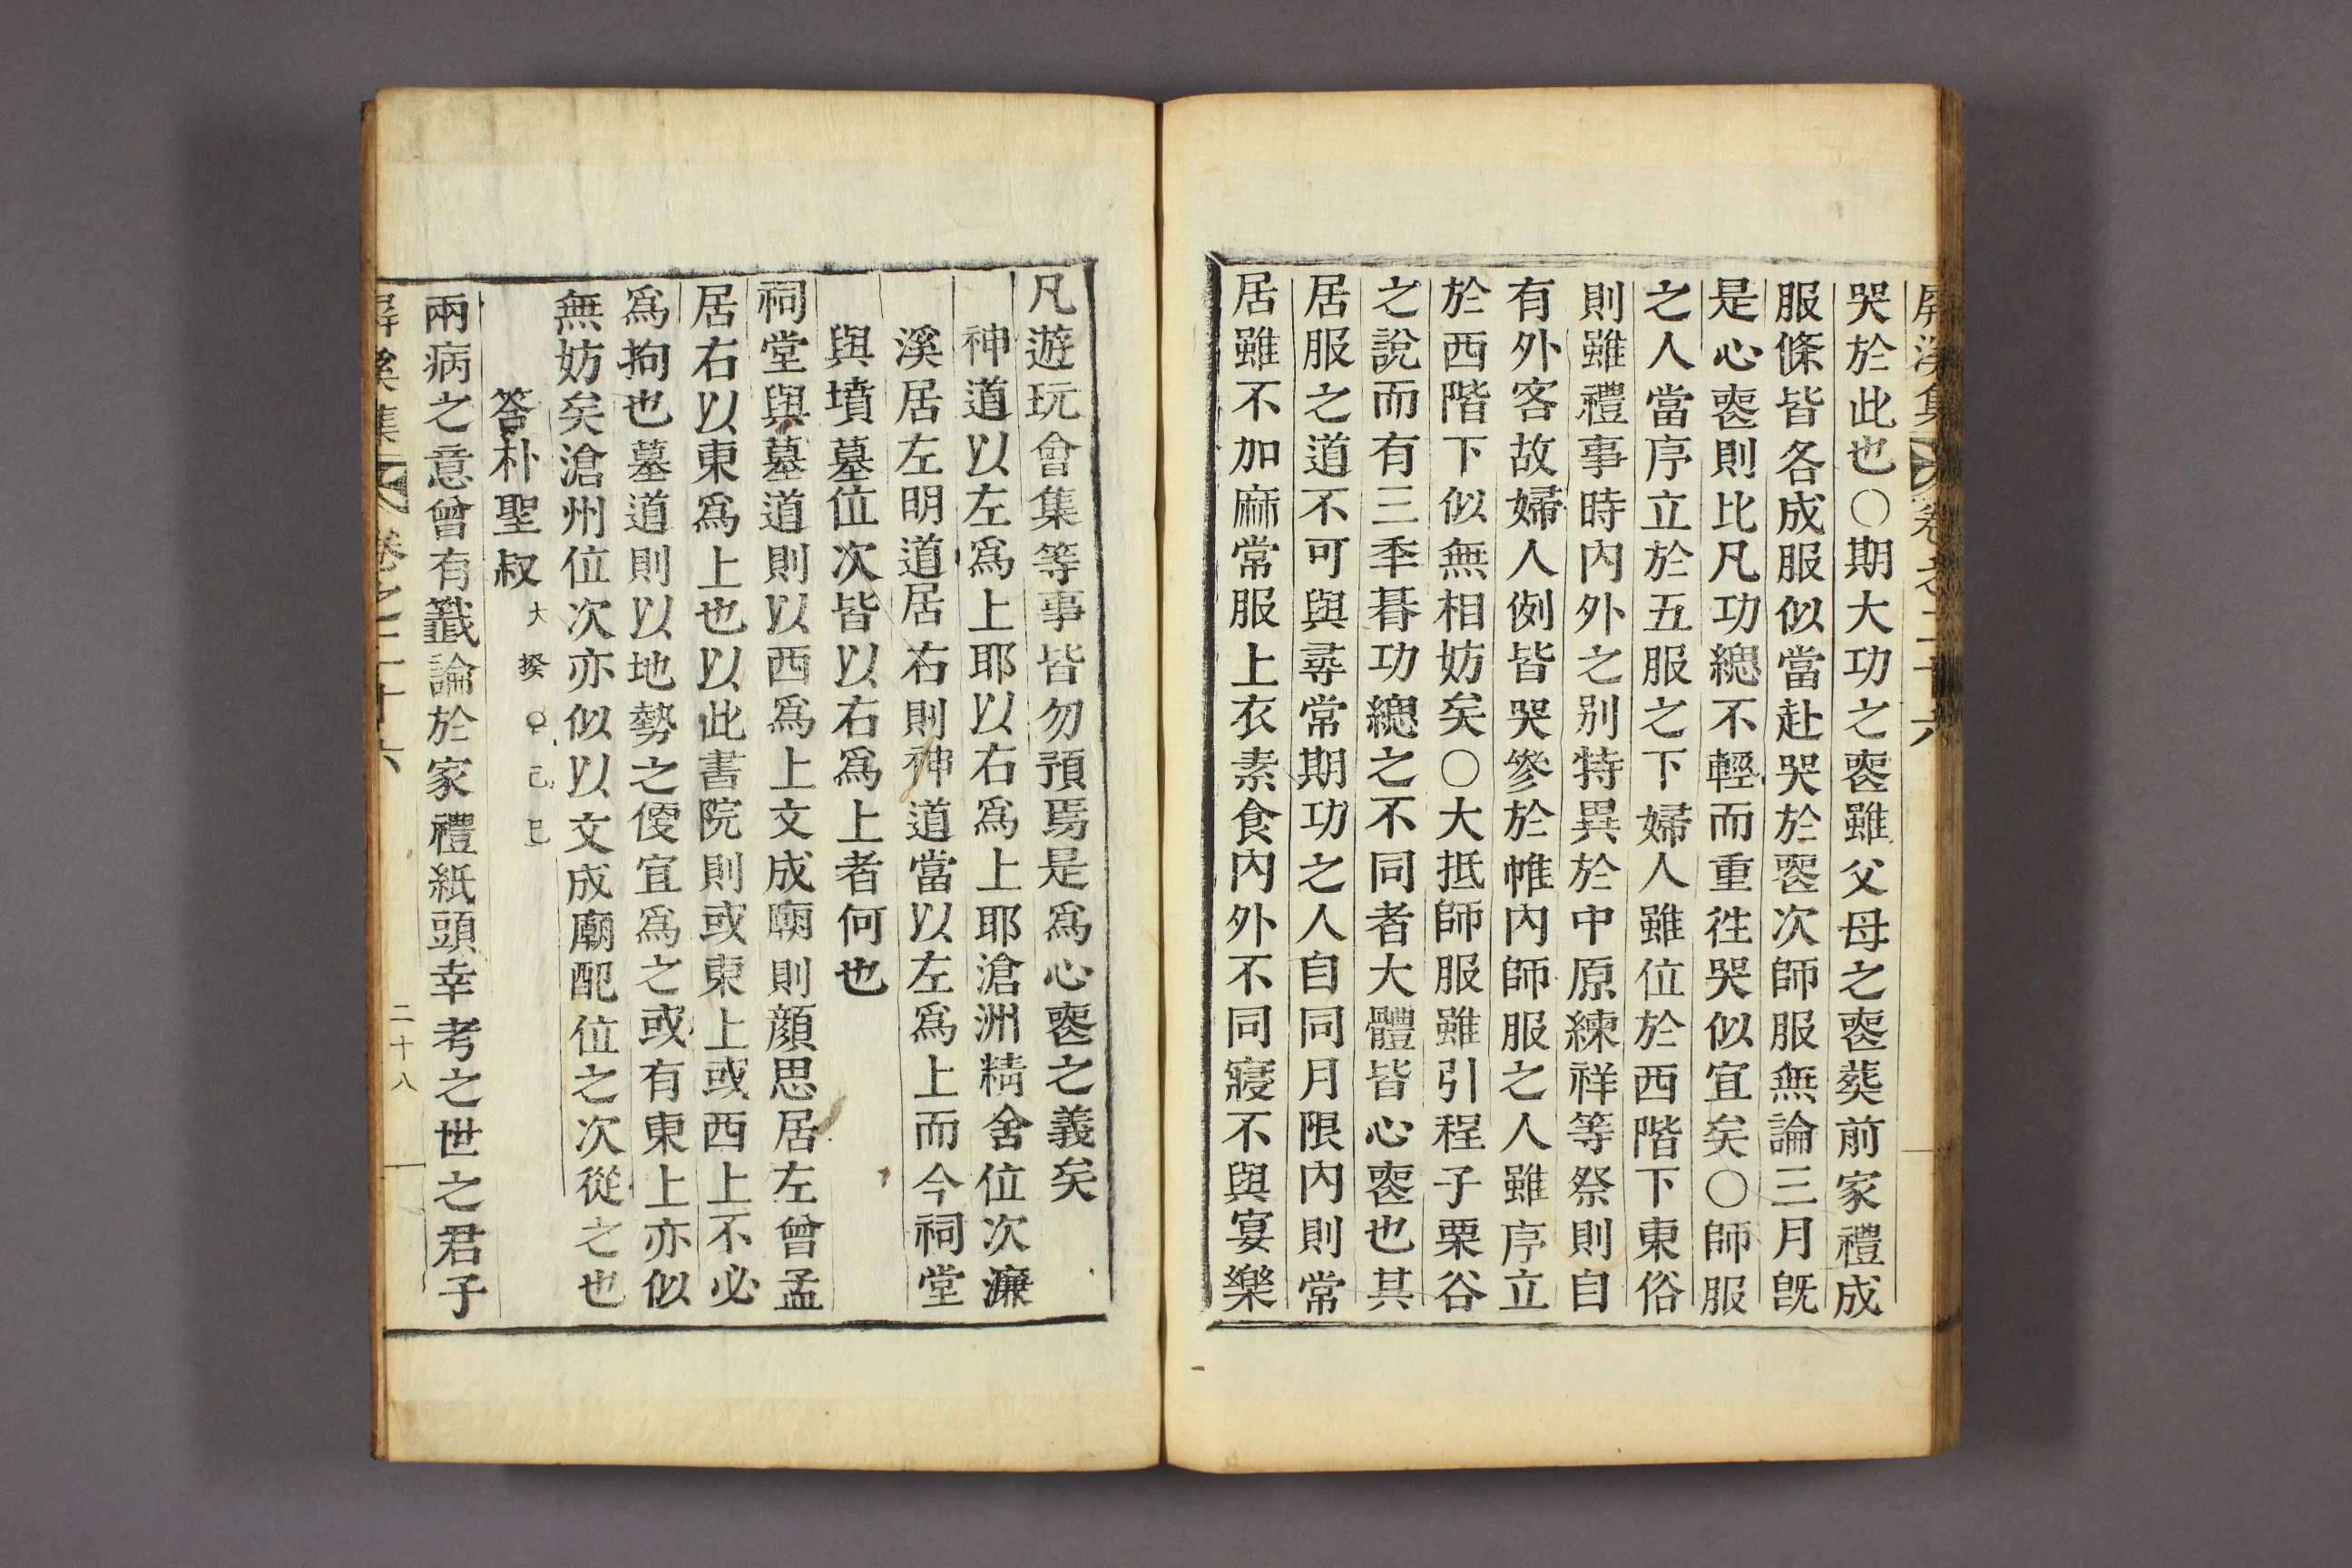 屛溪集 卷之二十六
哭於此也○期大功之喪雖父母之喪葬前家禮成
服條皆各成服似當赴哭於喪次師服無論三月旣
是心喪則比凡功緦不輕而重徃哭似宜矣○師服
之人當序立於五服之下婦人雖位於西階下東俗
則雖禮事時內外之別特異於中原練祥等祭則自
有外客故婦人例皆哭參於帷內師服之人雖序立
於西階下似無相妨矣○大抵師服雖引程子栗谷
之說而有三年朞功緦之不同者大體皆心喪也其
居服之道不可與尋常期功之人自同月限內則常
居雖不加麻常服上衣素食內外不同寢不與宴樂
凡遊玩會集等事皆勿預焉是爲心喪之義矣
神道以左爲上耶以右爲上耶滄洲精舍位次濂
溪居左明道居右則神道當以左爲上而今祠堂
與墳墓位次皆以右爲上者何也
祠堂與墓道則以西爲上文成廟則顔思居左曾孟
居右以東爲上也以此書院則或東上或西上不必
爲拘也墓道則以地勢之便宜爲之或有東上亦似
無妨矣滄州位次亦似以文成廟配位之次從之也
答朴聖叔大揆○己巳
兩病之意曾有籤論於家禮紙頭幸考之世之君子
屛溪集 卷之二十六 二十八